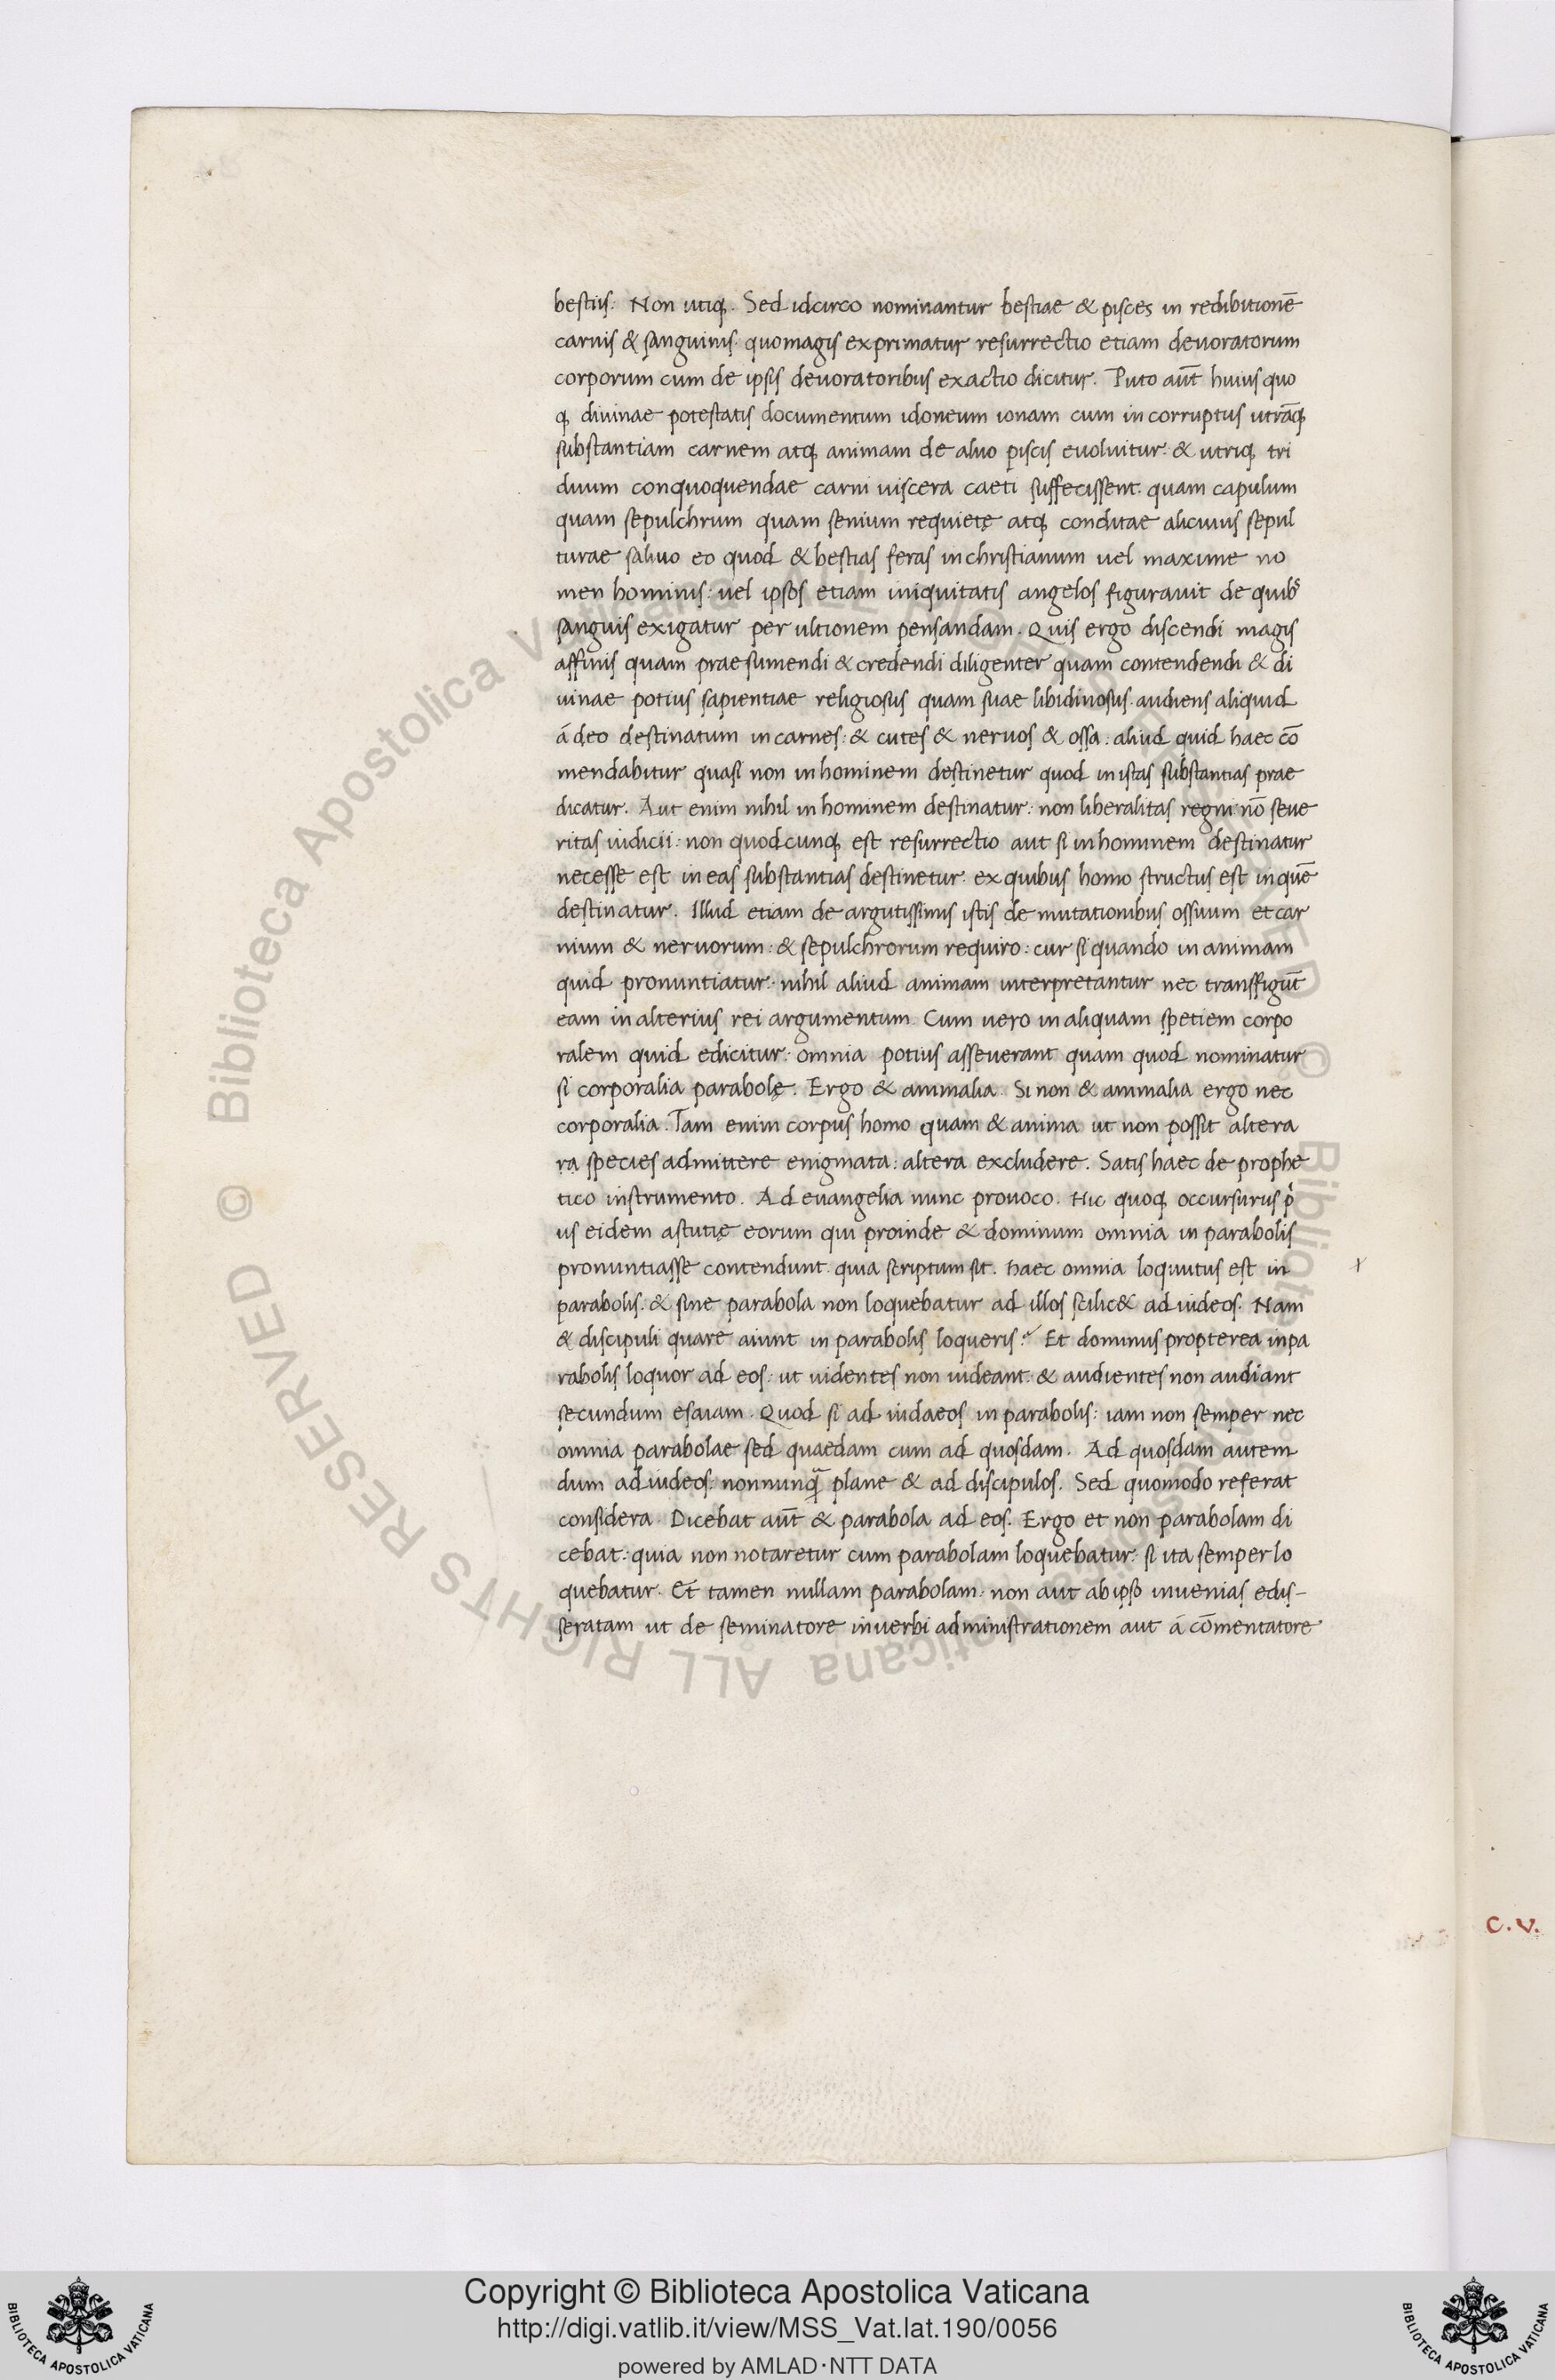 bestiis: Non utiq;. Sed idcirco nominantur bestiae & pisces in redibitionē
carnis & sanguinis. quomagis exprimatur resurrectio etiam deuoratorum
corporum cum de ipsis deuoratoribus exactio dicitur. Puto aūt huius quo
q; diuinae potestatis documentum idoneum ionam cum incorruptus utrāq;
substantiam carnem atq; animam de aluo piscis euoluitur. & utriq; tri
duum conquoquendae carni uiscera caeti suffecissent. quam capulum
quam sepulchrum quam senium requietę atq; conditae alicuius sepul
turae saluo eo quod & bestias feras inchristianum uel maxime no
men hominis: uel ipsos etiam iniquitatis angelos figurauit de quibꝰ
sanguis exigatur per ultionem pensandam. Quis ergo discendi magis
affinis quam praesumendi & credendi diligenter quam contendendi & di
uinae potius sapientiae religiosus quam suae libidinosus. audiens aliquid
á deo destinatum incarnes: & cutes & neruos & ossa: aliud quid haec cō
mendabitur quasi non inhominem destinetur quod inistas substantias prae
dicatur. Aut enim nihil inhominem destinatur: non liberalitas regni: nō seue
ritas iudicii: non quodcunq; est resurrectio aut si inhominem destinatur
necesse est ineas substantias destinetur. exquibus homo structus est inquē
destinatur. Illud etiam de argutissimis istis de mutationibus ossium et car
nium & neruorum: & sepulchrorum requiro: cur siquando inanimam
quid pronuntiatur: nihil aliud animam interpretantur nec transfigūt
eam inalterius rei argumentum. Cum uero inaliquam spetiem corpo
ralem quid edicitur: omnia potius asseuerant quam quod nominatur
si corporalia parabolę. Ergo & animalia. Si non & animalia ergo nec
corporalia. Tam enim corpus homo quam & anima ut non possit altera
ra species admittere enigmata: altera excludere. Satis haec de prophe
tico instrumento. Ad euangelia nunc prouoco. Hic quoq; occursurus pͥ
us eidem astutię eorum qui proinde & dominum omnia in parabolis
pronuntiasse contendunt. quia scriptum sit. haec omnia loquutus est in
parabolis. & sine parabola non loquebatur ad illos scilic& ad iudeos. Nam
& discipuli quare aiunt in parabolis loqueris? Et dominus propterea inpa
rabolis loquor ad eos: ut uidentes non uideant. & audientes non audiant
secundum esaiam. Quod si ad iudaeos in parabolis: iam non semper nec
omnia parabolae sed quaedam cum ad quosdam. Ad quosdam autem
dum ad iudeos: nonnunq̄ plane & ad discipulos. Sed quomodo referat
considera. Dicebat aūt & parabola ad eos. Ergo et non parabolam di
cebat: quia non notaretur cum parabolam loquebatur: si ita semper lo
quebatur. Et tamen nullam parabolam: non aut abipso inuenias edis-
seratam ut de seminatore inuerbi administrationem aut á cōmentatore
C. V.
© Biblioteca Apostolica Vaticana ALL RIGHTS RESERVED
© Biblioteca Apostolica Vaticana ALL RIGHTS RESERVED
Copyright © Biblioteca Apostolica Vaticana
http://digi.vatlib.it/view/MSS_Vat.lat.190/0056
powered by AMLAD·NTT DATA
BIBLIOTECA APOSTOLICA VATICANA
BIBLIOTECA APOSTOLICA VATICANA